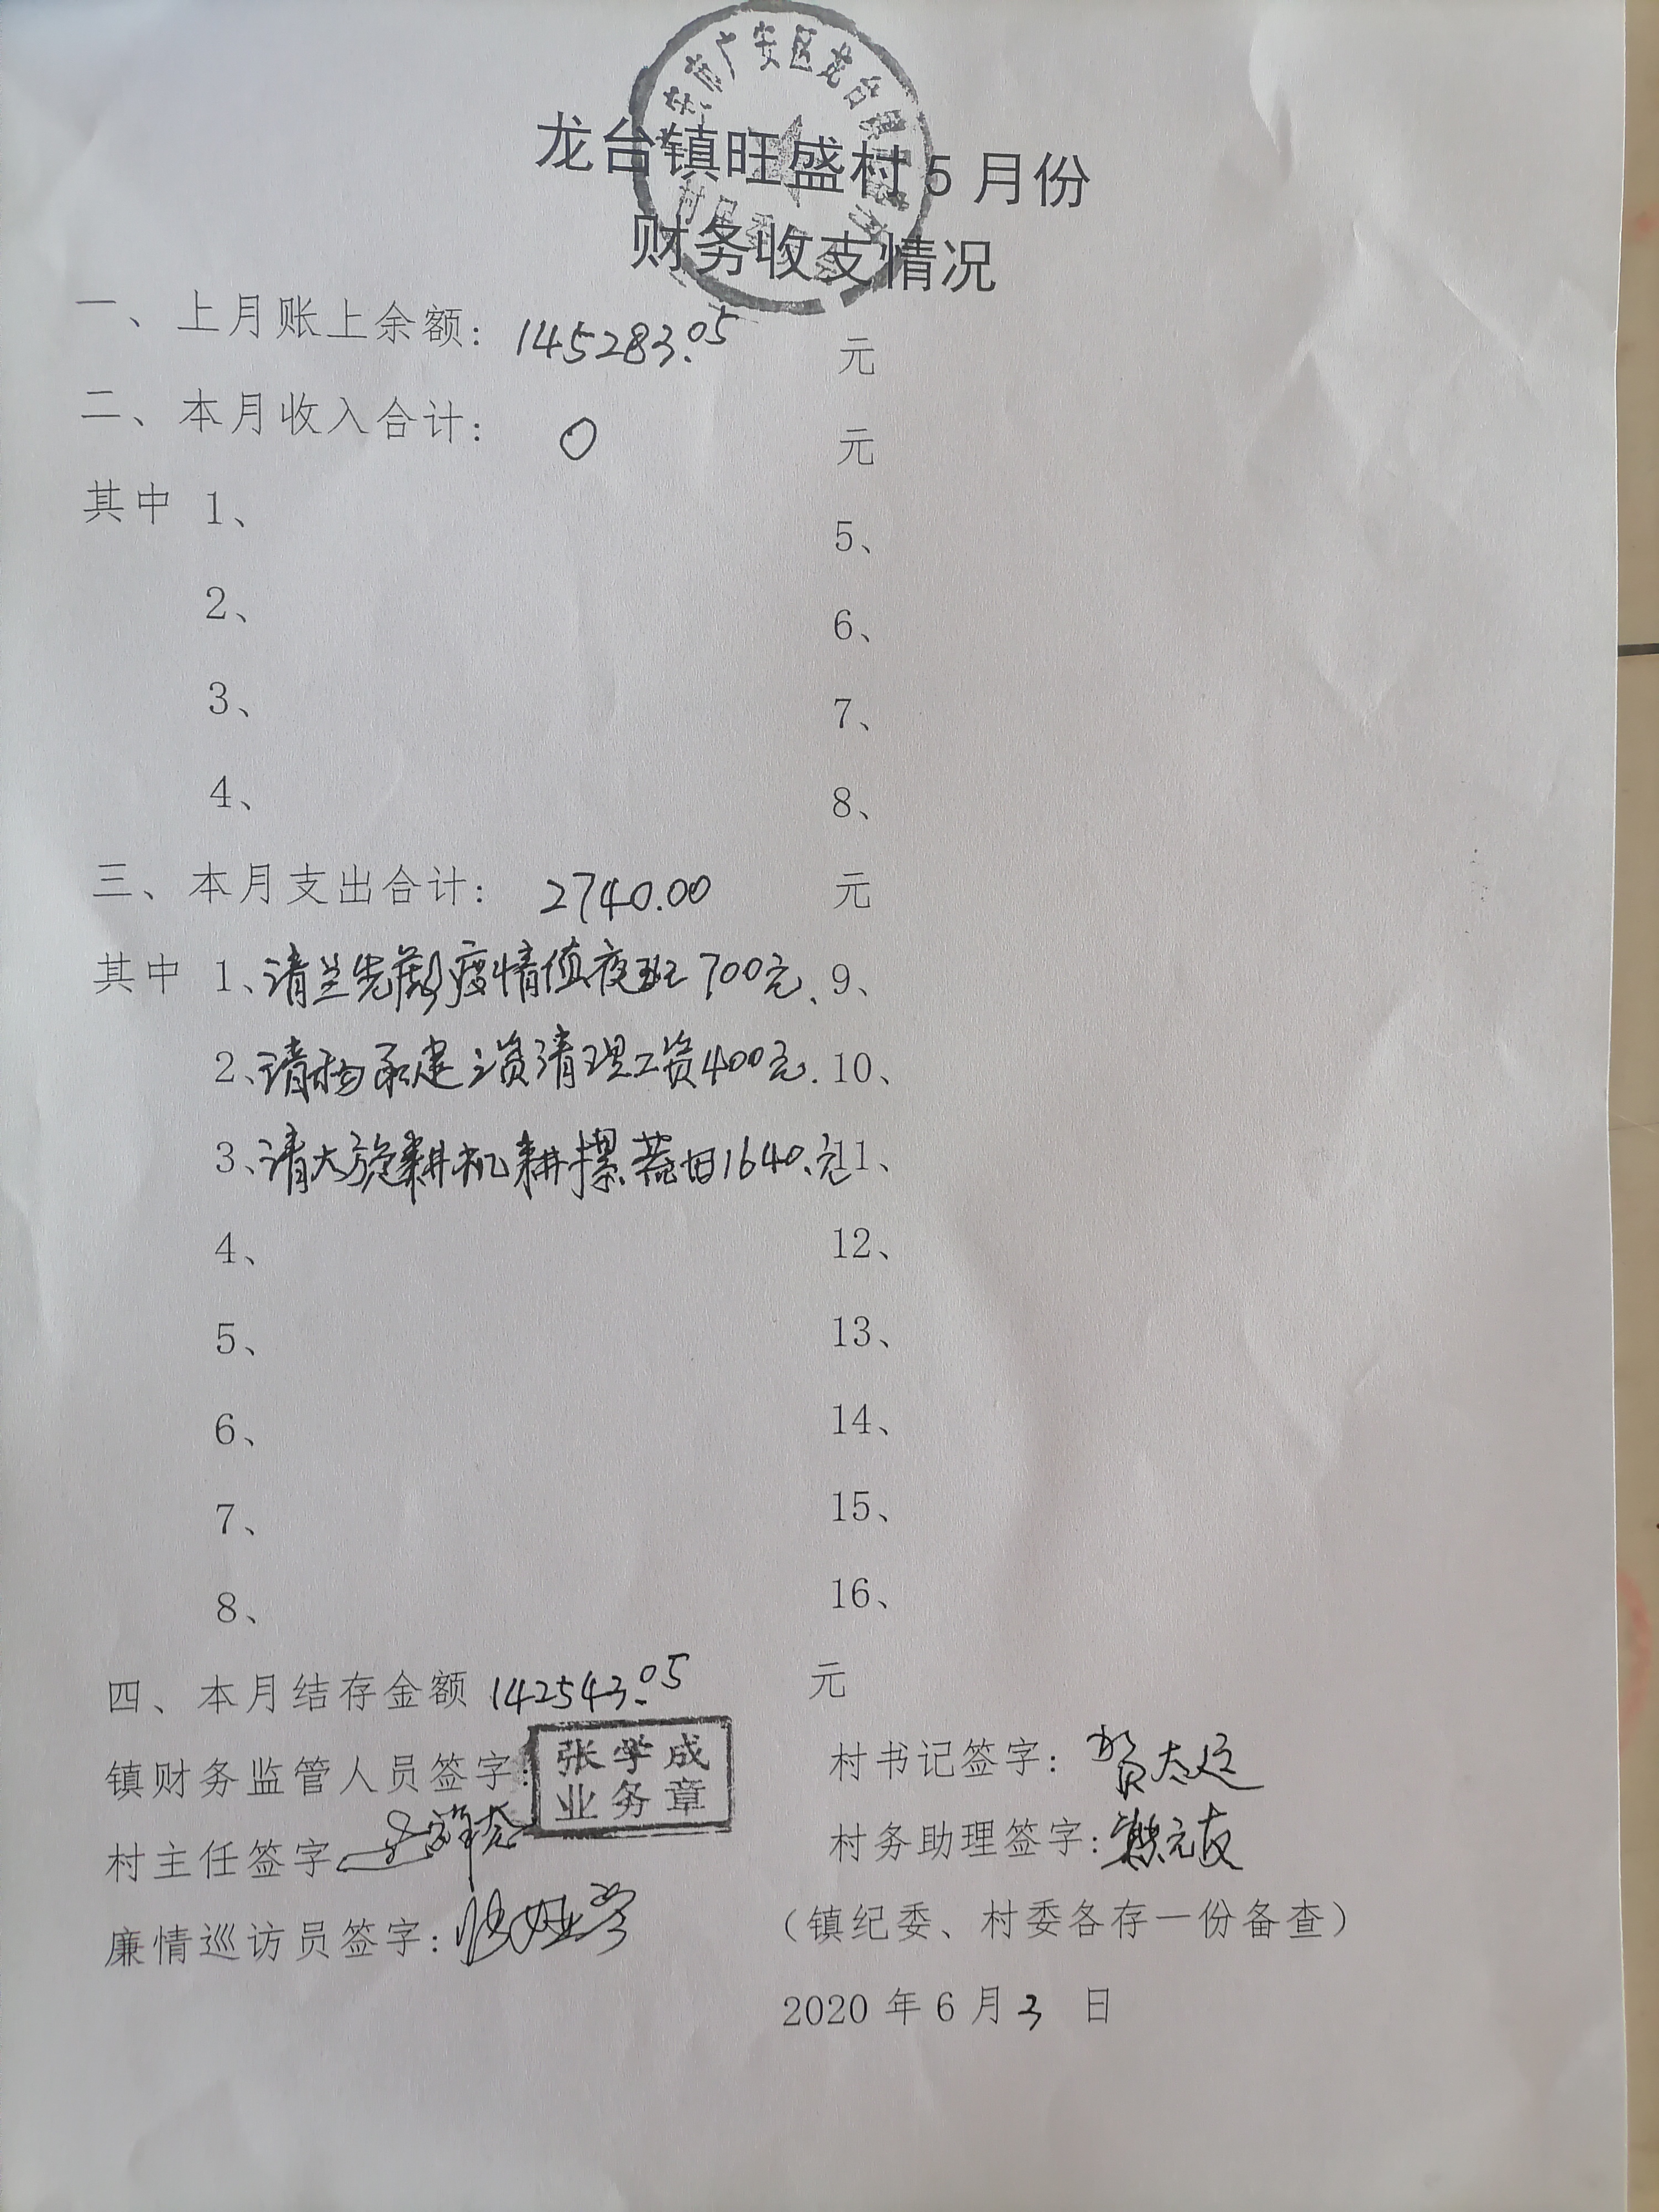 龙台镇旺盛村5月份
财务收支情况
一、上月账上余额：145283.05 元
二、本月收入合计：0 元
其中 1、 5、
2、 6、
3、 7、
4、 8、
三、本月支出合计：2740.00 元
其中 1、请兰先 疫情值夜班700元. 9、
2、请杨承建 资清理工资400元. 10、
3、请大旋耕机耕摞荒田1640.元 11、
4、 12、
5、 13、
6、 14、
7、 15、
8、 16、
四、本月结存金额 142543.05 元
镇财务监管人员签字：张学成 业务章 村书记签字：贺太
村主任签字 村务助理签字：元友
廉情巡访员签字： （镇纪委、村委各存一份备查）
2020年6月3日